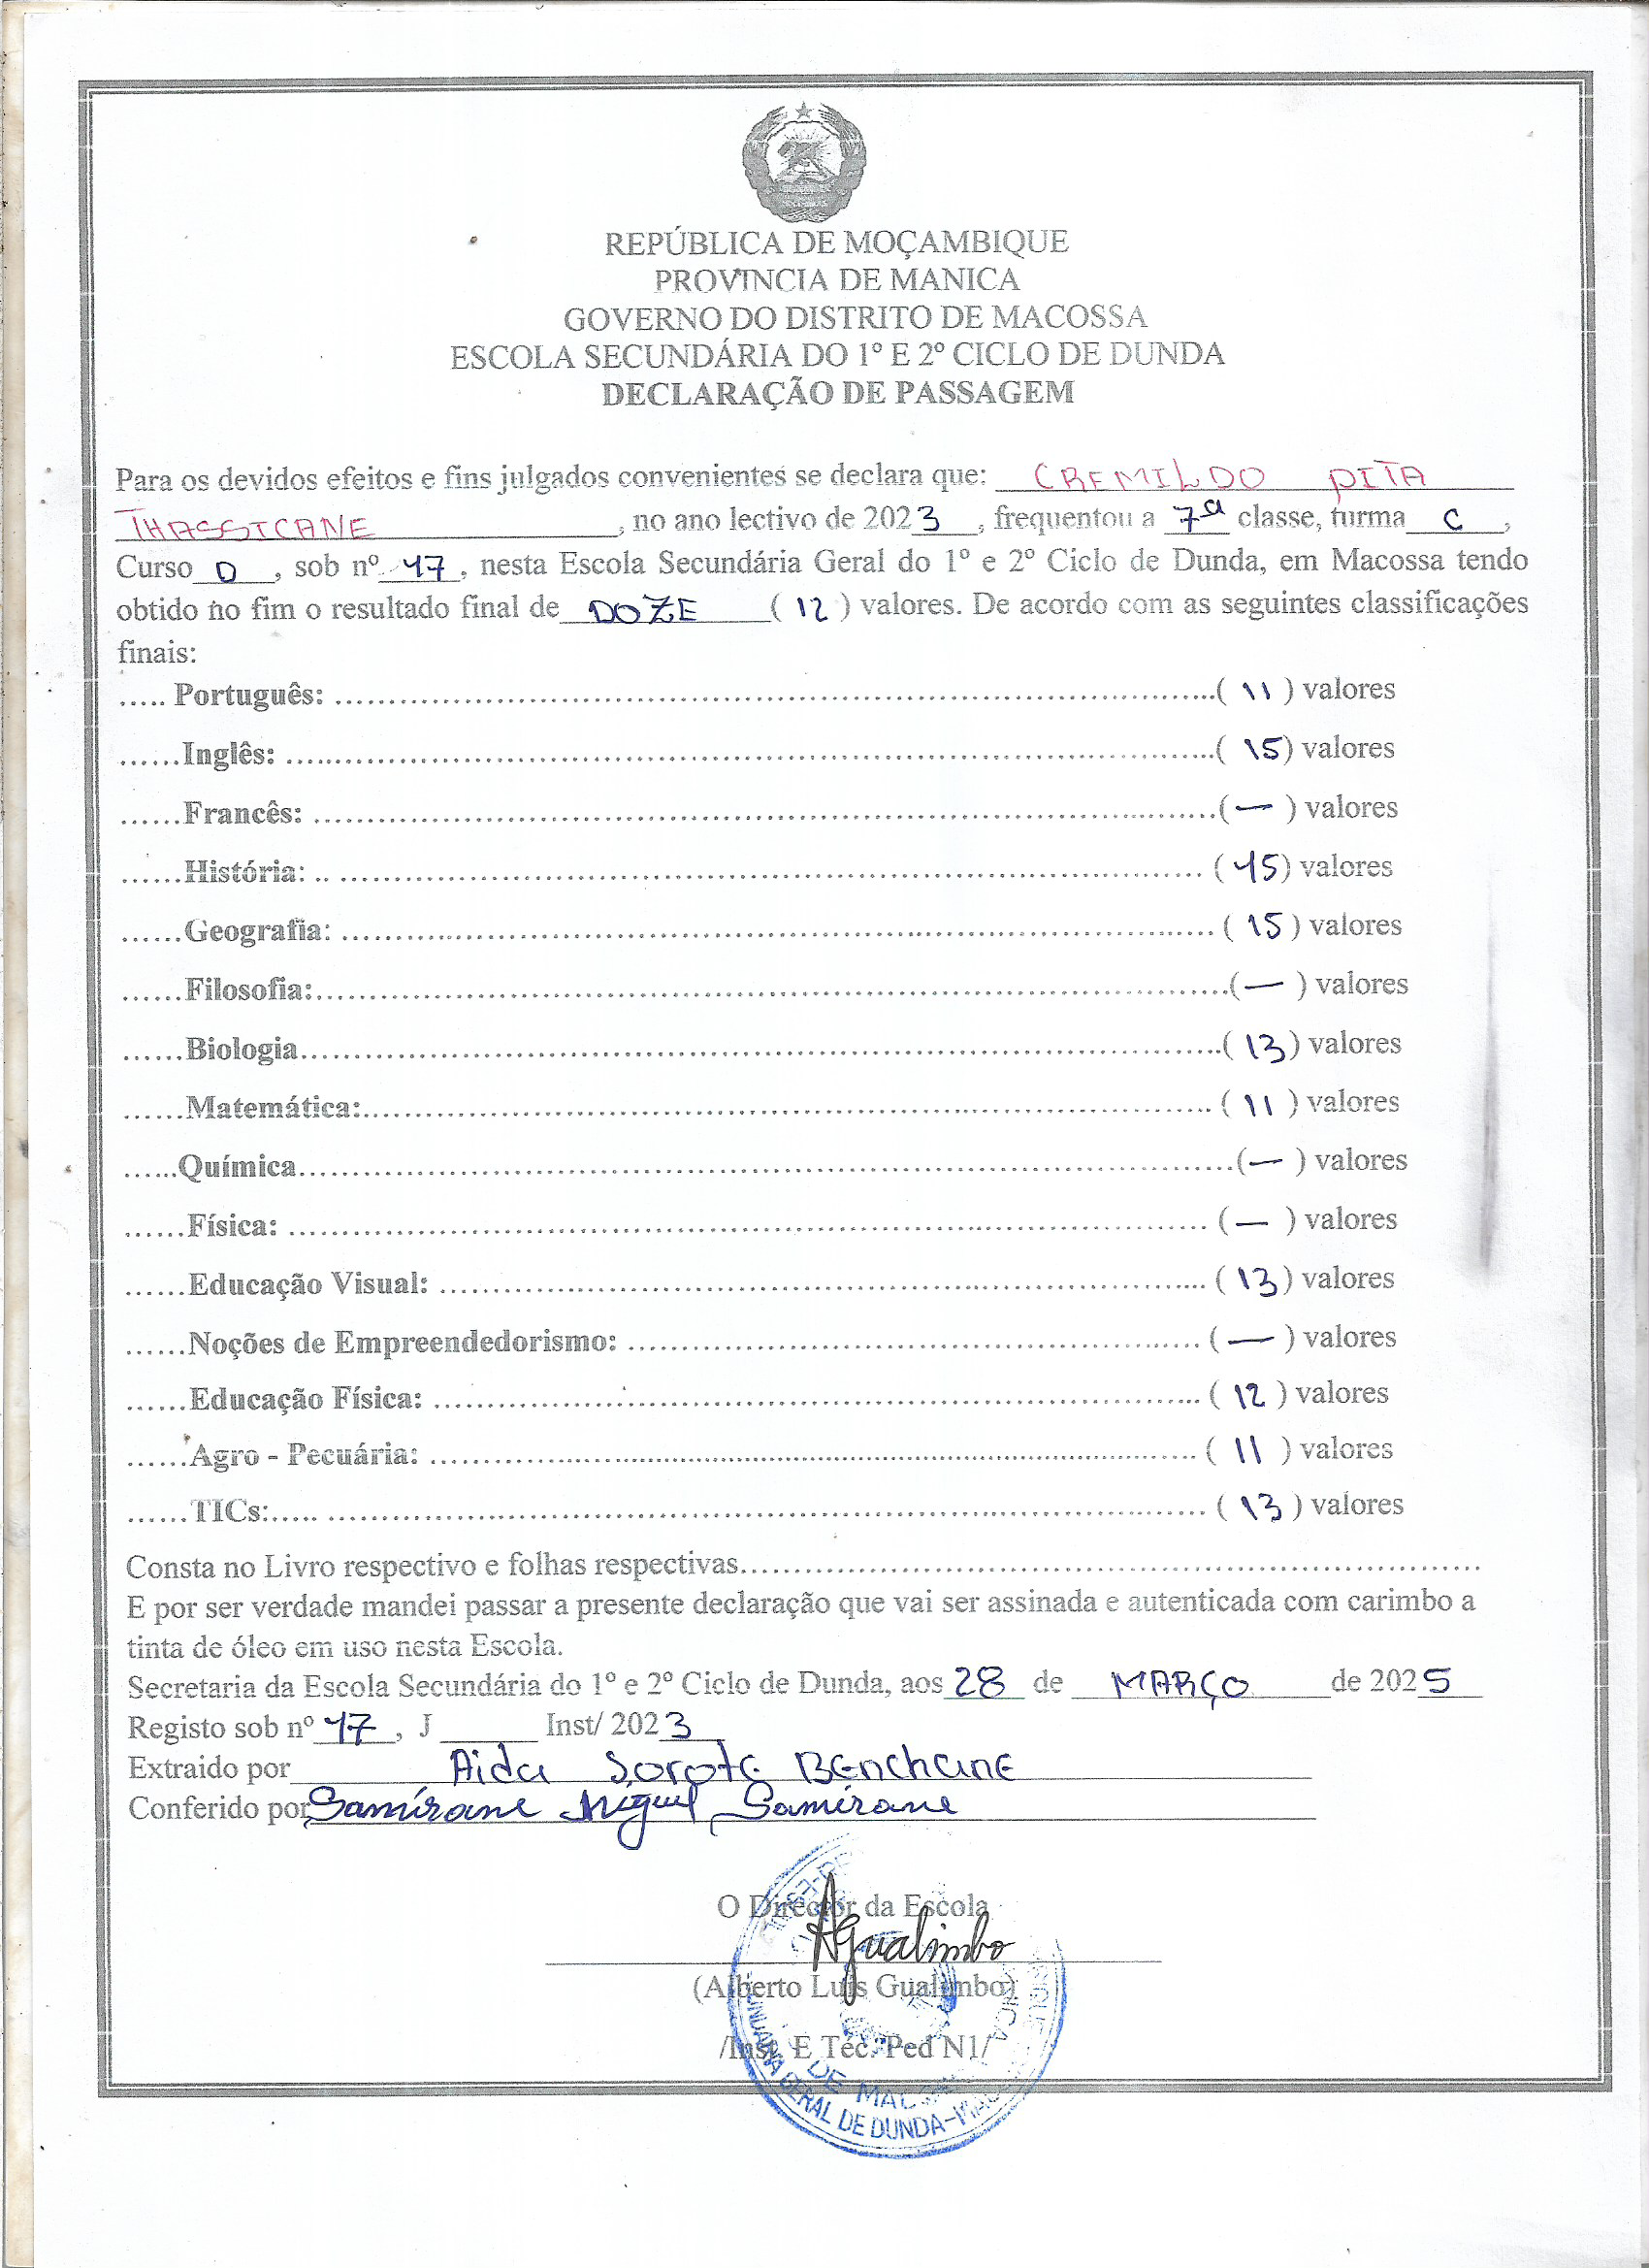 REPÚBLICA DE MOÇAMBIQUE
PROVINCIA DE MANICA
GOVERNO DO DISTRITO DE MACOSSA
ESCOLA SECUNDÁRIA DO 1º E 2º CICLO DE DUNDA
DECLARAÇÃO DE PASSAGEM
Para os devidos efeitos e fins julgados convenientes se declara que: CREMILDO PITA
THASSICANE, no ano lectivo de 2023, frequentou a 7ª classe, turma C,
Curso D, sob nº 17, nesta Escola Secundária Geral do 1º e 2º Ciclo de Dunda, em Macossa tendo
obtido no fim o resultado final de DOZE (12) valores. De acordo com as seguintes classificações
finais:
..... Português: ..........(11) valores
......Inglês: ..........(15) valores
......Francês: ..........(—) valores
......História: .. .......... (15) valores
......Geografia: .......... (15) valores
......Filosofia:..........(—) valores
......Biologia..........(13) valores
......Matemática:.......... (11) valores
......Química..........(—) valores
......Física: .......... (—) valores
......Educação Visual: .......... (13) valores
......Noções de Empreendedorismo: .......... (—) valores
......Educação Física: .......... (12) valores
......Agro - Pecuária: .......... (11) valores
......TICs:..... .......... (13) valores
Consta no Livro respectivo e folhas respectivas..........
E por ser verdade mandei passar a presente declaração que vai ser assinada e autenticada com carimbo a
tinta de óleo em uso nesta Escola.
Secretaria da Escola Secundária do 1º e 2º Ciclo de Dunda, aos 28 de MARÇO de 2025
Registo sob nº 17, J ______ Inst/ 2023
Extraido por Aida Sorote Benchane
Conferido por Samirane Miguel Samirane
O Director da Escola
AGualimbo
(Alberto Luís Gualimbo)
/Inst. E Téc. Ped N1/
DE MAC
GERAL DE DUNDA-MAC